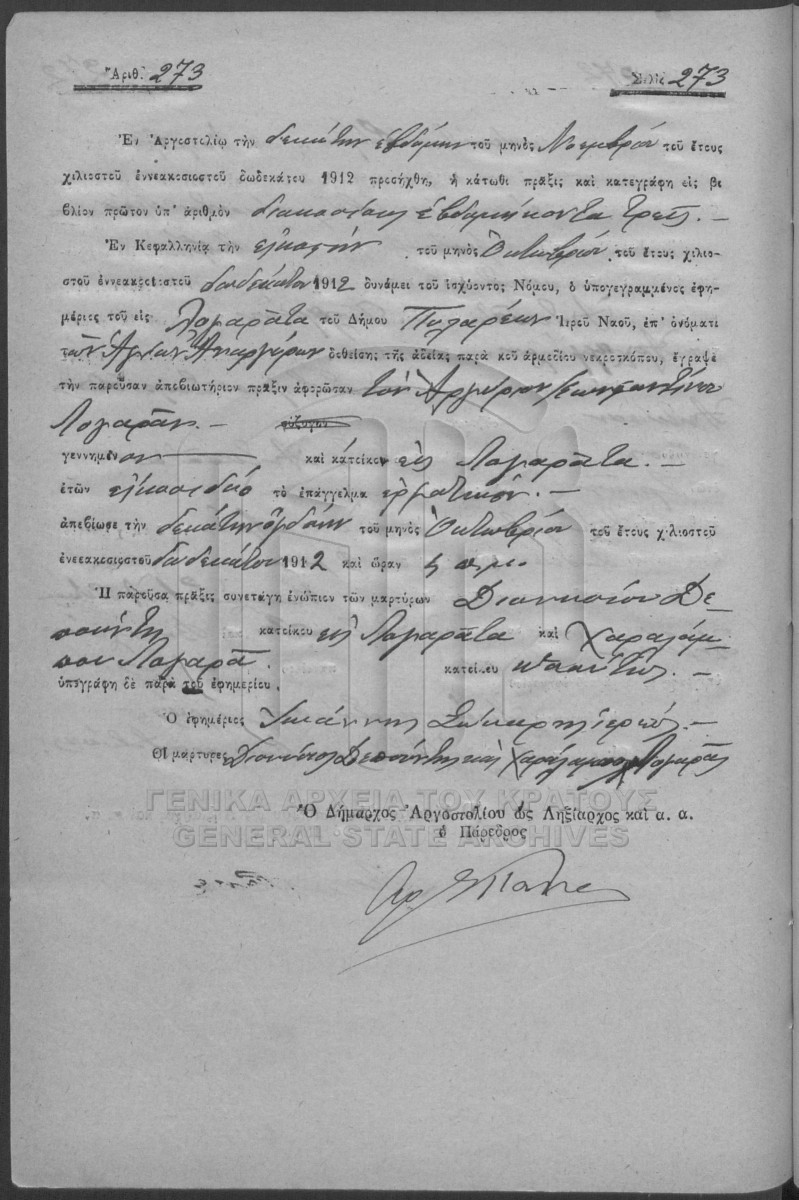 Ἀριθ. 273 Σελὶς 273
Ἐν Ἀργοστολίῳ τὴν δεκάτην ἑβδόμην τοῦ μηνὸς Νοεμβρίου τοῦ ἔτους
χιλιοστοῦ ἐννεακοσιοστοῦ δωδεκάτου 1912 προσήχθη, ἡ κάτωθι πρᾶξις καὶ κατεγράφη εἰς βι
βλίον πρῶτον ὑπ' ἀριθμὸν διακοσίους ἑβδομήκοντα τρεῖς. —
Ἐν Κεφαλληνίᾳ τὴν εἰκοστὴν τοῦ μηνὸς Ὀκτωβρίου τοῦ ἔτους χιλιο-
στοῦ ἐννεακοσιοστοῦ δωδεκάτου 1912 δυνάμει τοῦ ἰσχύοντος Νόμου, ὁ ὑπογεγραμμένος ἐφη-
μέριος τοῦ εἰς Λογαράτα τοῦ Δήμου Πυλαρέων Ἱεροῦ Ναοῦ, ἐπ' ὀνόματι
τῶν Ἁγίων Ἀναργύρων δοθείσης τῆς ἀδείας παρὰ τοῦ ἁρμοδίου νεκροσκόπου, ἔγραψε
τὴν παροῦσαν ἀποβιωτήριον πρᾶξιν ἀφορῶσαν τὸν Ἀργύριον Κωνσταντίνου
Λογαρᾶν. — σύζυγον
γεννημένον — καὶ κάτοικον εἰς Λογαράτα. —
ἐτῶν εἴκοσι δύο τὸ ἐπάγγελμα ἐργατικόν. —
ἀπεβίωσε τὴν δεκάτην ὀγδόην τοῦ μηνὸς Ὀκτωβρίου τοῦ ἔτους χιλιοστοῦ
ἐνεακοσιοστοῦ δωδεκάτου 1912 καὶ ὥραν 5 π.μ.
Ἡ παροῦσα πρᾶξις συνετάγη ἐνώπιον τῶν μαρτύρων Διονυσίου Δε-
πούντη κατοίκου εἰς Λογαράτα καὶ Χαραλάμ-
που Λογαρᾶ. κατοίκου ὡσαύτως. —
ὑπεγράφη δὲ παρὰ τοῦ ἐφημερίου.
Ὁ ἐφημέριος Ἰωάννης ἱερεύς. —
Οἱ μάρτυρες Διονύσιος Δεπούντης καὶ Χαράλαμπος Λογαρᾶς
ΓΕΝΙΚΑ ΑΡΧΕΙΑ ΤΟΥ ΚΡΑΤΟΥΣ
GENERAL STATE ARCHIVES
Ὁ Δήμαρχος Ἀργοστολίου ὡς Ληξίαρχος καὶ α. α.
ὁ Πάρεδρος